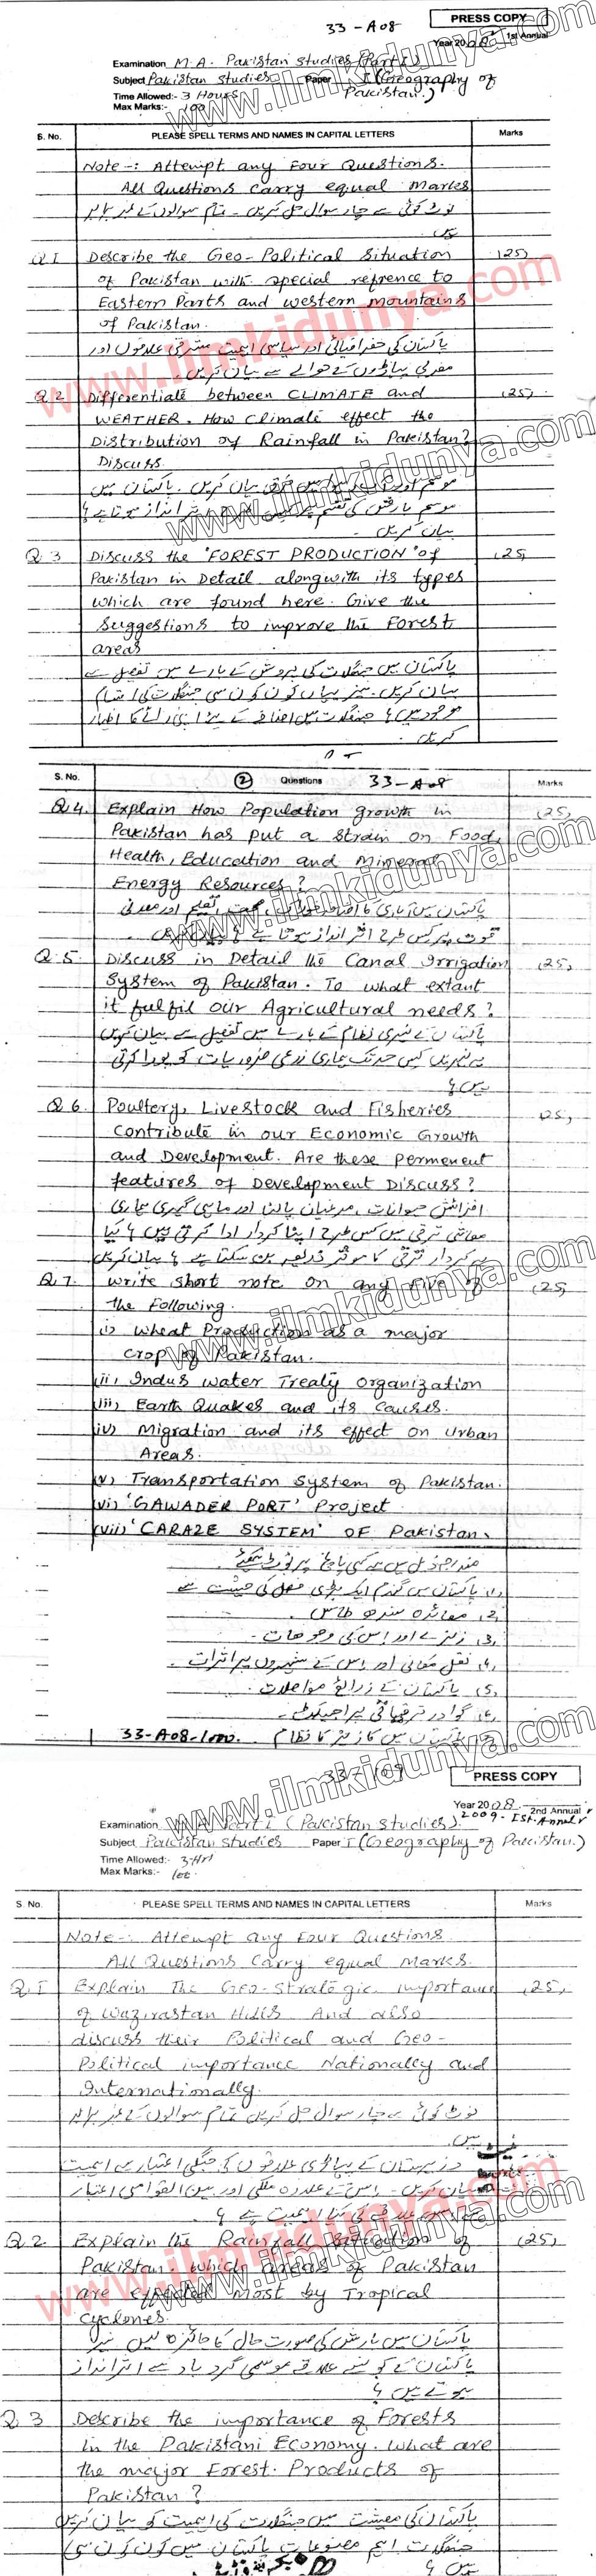 33-A08
PRESS COPY
Year 2008 1st Annual
Examination M.A. Pakistan Studies (Part I)
Subject Pakistan Studies Paper I (Geography of
Time Allowed:- 3 Hours Pakistan.)
Max Marks:- 100
S. No. PLEASE SPELL TERMS AND NAMES IN CAPITAL LETTERS Marks
Note -: Attempt any Four Questions.
All Questions Carry equal Marks
نوٹ کوئی سے چار سوال حل کریں۔ تمام سوالوں کے نمبر برابر
ہیں۔
Q1 Describe the Geo-Political Situation (25)
of Pakistan with special refrence to
Eastern Parts and western mountains
of Pakistan.
پاکستان کی جغرافیائی اور سیاسی اہمیت مشرقی علاقوں اور
مغربی پہاڑوں کے حوالے سے بیان کریں۔
Q2 Differentiate between CLIMATE and (25)
WEATHER. How climate effect the
Distribution of Rainfall in Pakistan?
Discuss.
بیان کریں۔ پاکستان میں
موسم بارش کی تقسیم پر انداز ہوتا ہے؟
بیان کریں۔
Q3 Discuss the 'FOREST PRODUCTION' of (25)
Pakistan in Detail alongwith its types
which are found here. Give the
Suggestions to improve the Forest
areas
پاکستان میں جنگلات کی پرورش کے بارے میں تفصیل سے
بیان کریں۔ نیز یہاں کون کون سی جنگلات کی اقسام
موجود ہیں؟ جنگلات میں اضافے کے لیے اپنی رائے کا اظہار
کریں۔
S. No. (2) Questions 33-A08 Marks
Q4. Explain How Population growth in (25)
Pakistan has put a strain on Food,
Health, Education and Mineral
Energy Resources?
پاکستان میں آبادی کا اضافہ تعلیم اور معدنی
قوت پر کس طرح اثر انداز ہوتا ہے؟
Q5. Discuss in Detail the Canal Irrigation (25)
System of Pakistan. To what extant
it fulfil our Agricultural needs?
پاکستان کے نہری نظام کے بارے میں تفصیل سے بیان کریں
یہ نہریں کس حد تک ہماری زرعی ضروریات کو پورا کرتی
ہیں؟
Q6. Poultery, Livestock and Fisheries (25)
Contribute in our Economic Growth
and Development. Are these Permenent
features of Development Discuss?
افزائش حیوانات، مرغیاں پالنا اور ماہی گیری ہماری
معاشی ترقی میں کس طرح اپنا کردار ادا کرتی ہیں؟ کیا
یہ کردار ترقی کا موثر ذریعہ بن سکتا ہے؟ بیان کریں
Q7. Write short note on any Five of (25)
the Following.
(i) Wheat Production as a major
Crop of Pakistan.
(ii) Indus Water Treaty Organization
(iii) Earth Quakes and its Causes.
(iv) Migration and its effect on Urban
Areas.
(v) Transportation System of Pakistan.
(vi) 'GAWADER PORT' Project
(vii) 'CARAZE SYSTEM' OF Pakistan.
مندرجہ ذیل میں سے کسی پانچ پر نوٹ لکھیے۔
1. پاکستان میں گندم ایک بڑی فصل کی حیثیت سے
2. معاہدہ سندھ طاس۔
3. زلزلے اور اس کی وجوہات۔
4. نقل مکانی اور اس کے شہروں پر اثرات۔
5. پاکستان کے ذرائع مواصلات۔
6. گوادر ترقیاتی پراجیکٹ۔
پاکستان میں کاریز کا نظام
33-A08-1000.
PRESS COPY
Year 2008 2nd Annual
2009 - Ist. Annual
Examination M.A Part I (Pakistan Studies).
Subject Pakistan Studies Paper I (Geography of Pakistan.)
Time Allowed:- 3-Hrs
Max Marks:- 100
S. No. PLEASE SPELL TERMS AND NAMES IN CAPITAL LETTERS Marks
Note -: Attempt any Four Questions
All Questions Carry equal Marks.
Q.1 Explain The Geo-Strategic importance (25)
of Wazirastan Hills And also
discuss their Political and Geo-
Political importance Nationally and
Internationally.
نوٹ کوئی سے چار سوال حل کریں تمام سوالوں کے نمبر برابر
ہیں۔
وزیرستان کے پہاڑی علاقوں کی جنگی اعتبار سے اہمیت
بیان کریں۔ اس کے علاوہ ملکی اور بین القوامی اعتبار
اہمیت ہے؟
Q.2 Explain the Rainfall Pattern of (25)
Pakistan which areas of Pakistan
are effected most by Tropical
Cyclones.
پاکستان میں بارش کی صورت حال کا جائزہ لیں نیز
پاکستان کے کونسے علاقے موسمی گرد باد سے اثر انداز
ہوتے ہیں؟
Q.3 Describe the importance of Forests
in the Pakistani Economy. what are
the major Forest. Products of
Pakistan?
پاکستان کی معیشت میں جنگلات کی اہمیت کو بیان کریں
جنگلات اہم مصنوعات پاکستان میں کون کون سی
ہیں؟
www.ilmkidunya.com
www.ilmkidunya.com
www.ilmkidunya.com
www.ilmkidunya.com
www.ilmkidunya.com
www.ilmkidunya.com
www.ilmkidunya.com
www.ilmkidunya.com
www.ilmkidunya.com